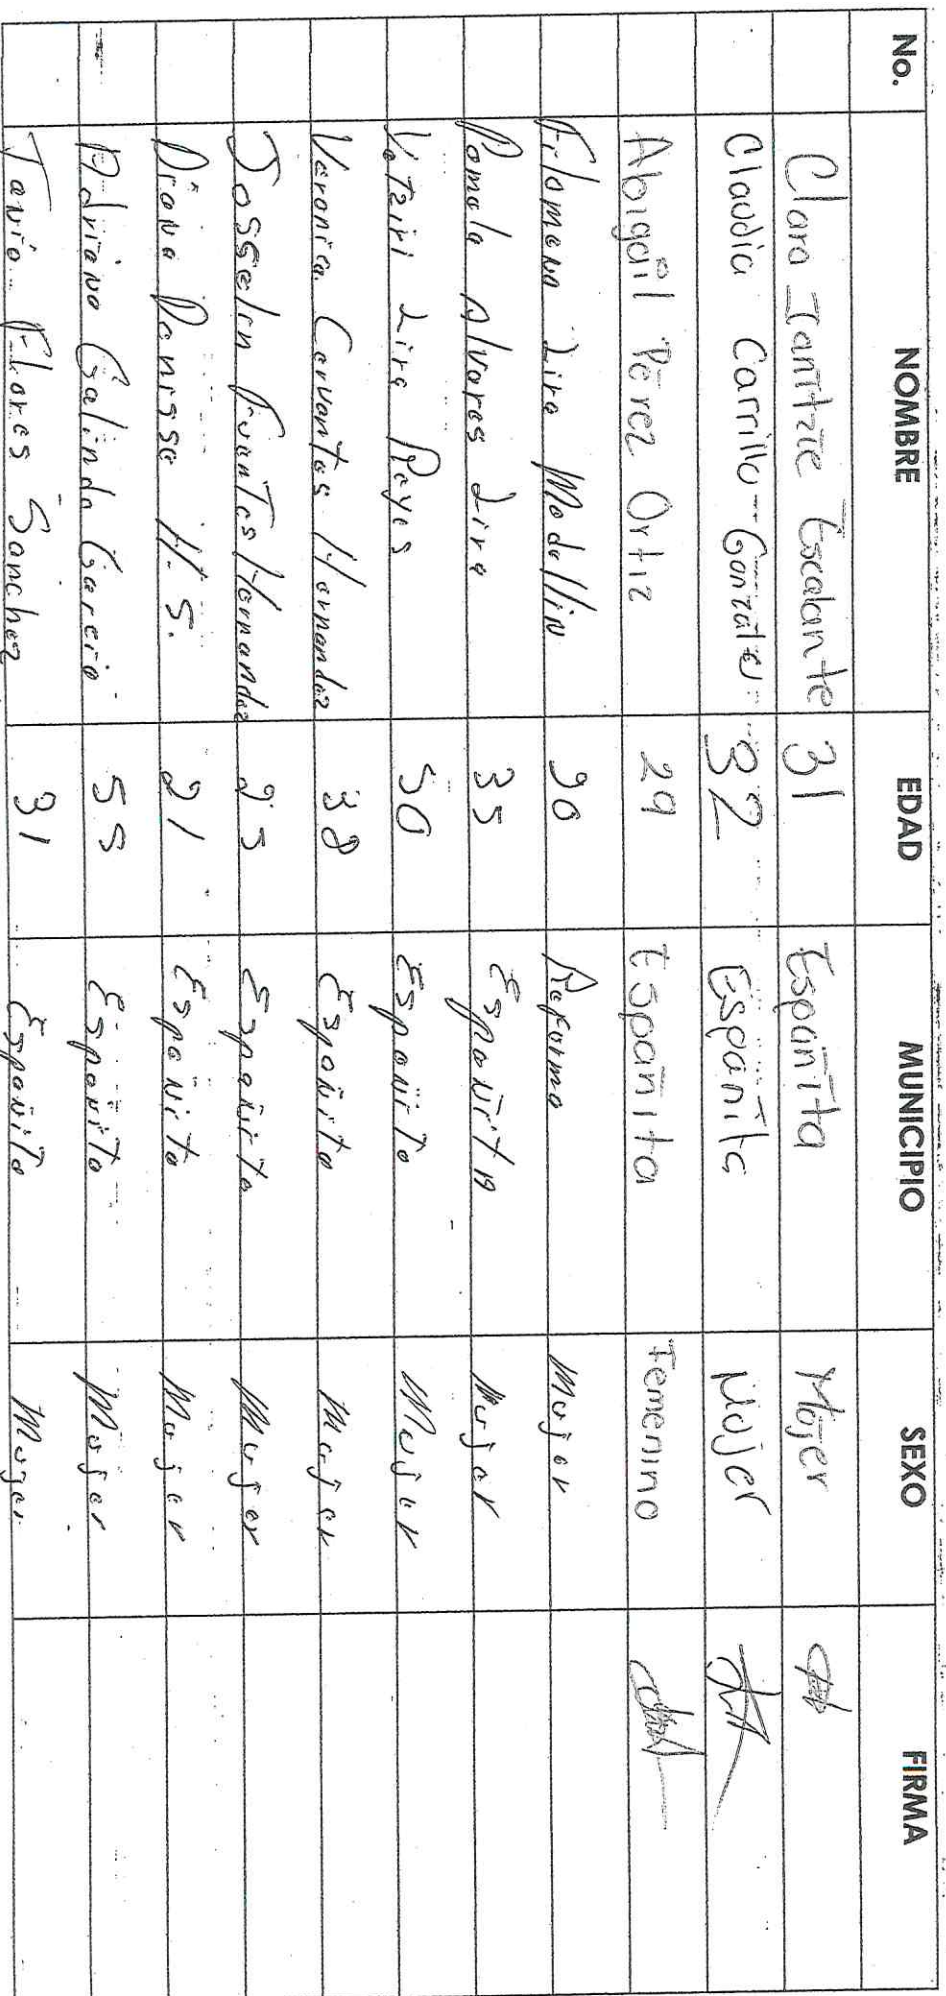 No. NOMBRE EDAD MUNICIPIO SEXO FIRMA
Clara Ianitzie Escalante 31 Españita Mujer
Claudia Carrillo Gonzále 32 Españita Mujer
Abigail Pérez Ortiz 29 Españita Femenino
Filomena Lira Medellin 90 Reforma Mujer
Pamela Alvares Lira 35 Españita Mujer
Lira Reyes 50 Españita Mujer
Veronica Cervantes Hernandez 38 Españita Mujer
Josselin Fuentes Hernandez 25 Españita Mujer
Diana Danissa H. S. 21 Españita Mujer
Adriana Galindo Garcia 55 Españita Mujer
Tania Flores Sanchez 31 Españita Mujer